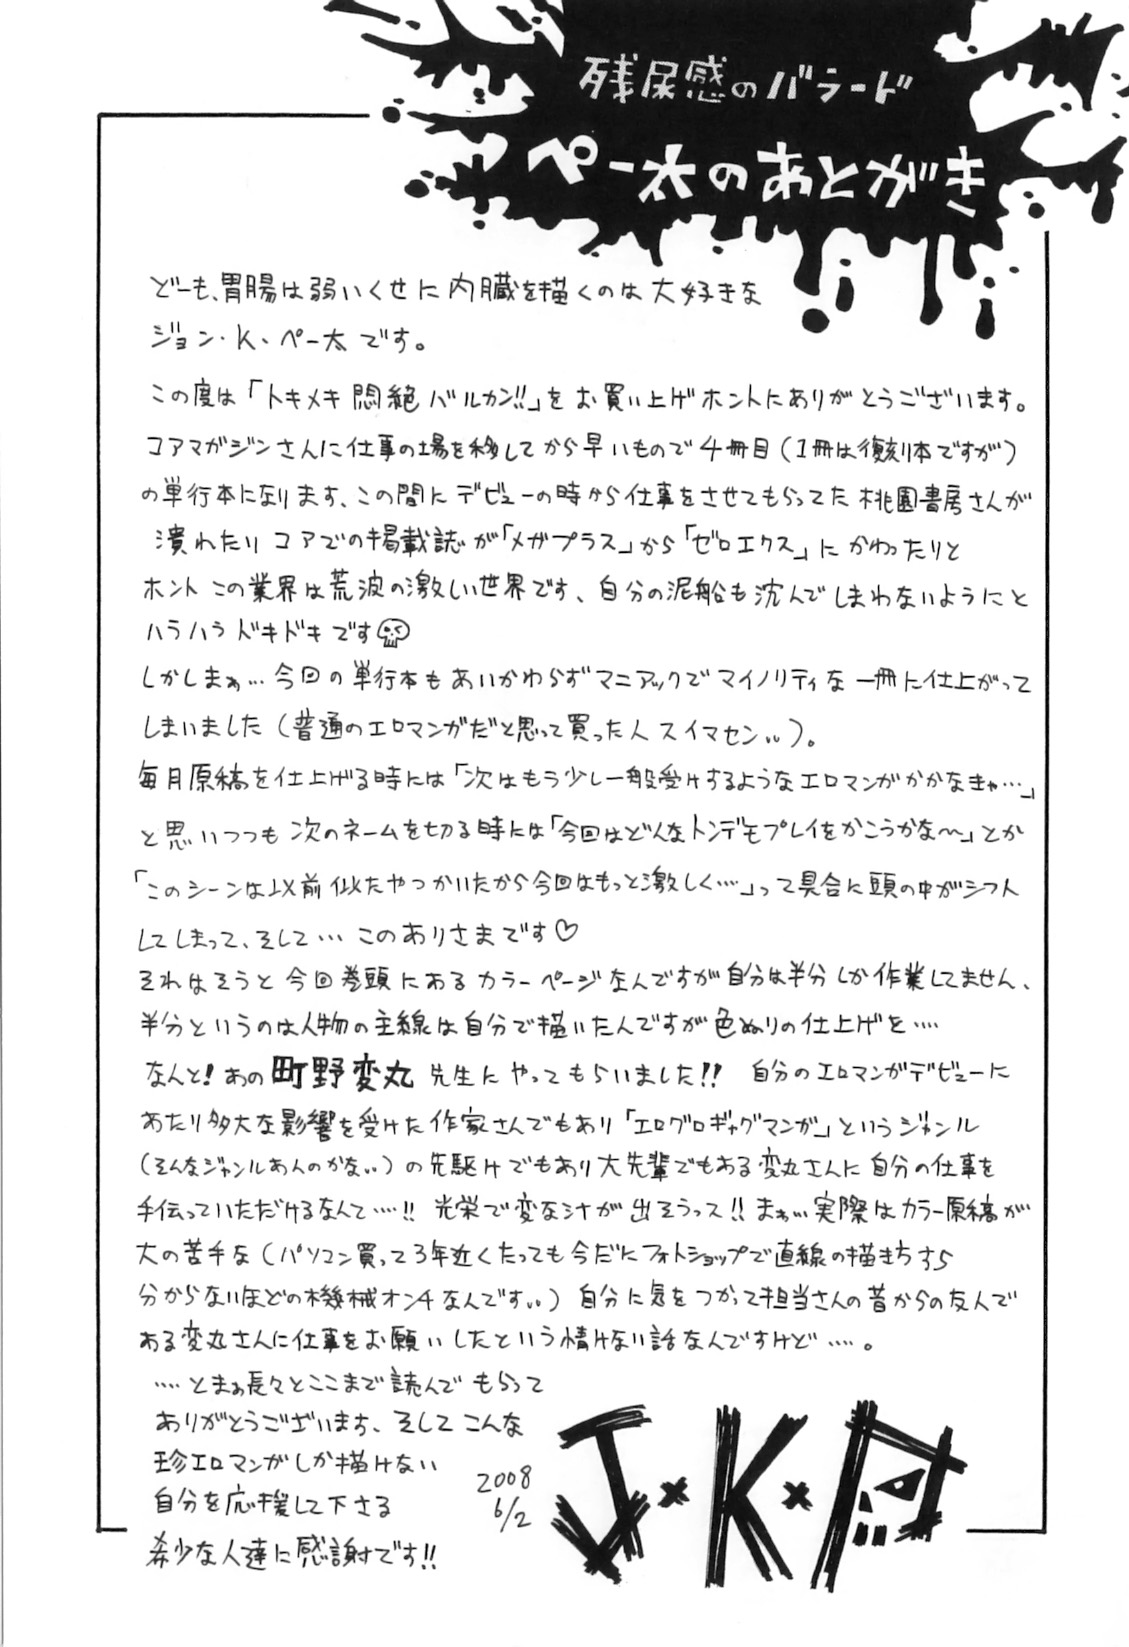 残尿感のバラード
ペー太のあとがき
どーも、胃腸は弱いくせに内臓を描くのは大好きな
ジョン・K・ペー太です。
この度は「トキメキ悶絶バルカン!!」をお買い上げホントにありがとうございます。
コアマガジンさんに仕事の場を移してから早いもので4冊目(1冊は復刻本ですが)
の単行本になります、この間にデビューの時から仕事をさせてもらってた桃園書房さんが
潰れたりコアでの掲載誌が「メガプラス」から「ゼロエクス」にかわったりと
ホントこの業界は荒波の激しい世界です、自分の泥船も沈んでしまわないようにと
ハラハラドキドキです
しかしまぁ…今回の単行本もあいかわらずマニアックでマイノリティな一冊に仕上がって
しまいました(普通のエロマンガだと思って買った人スイマセン‥)。
毎月原稿を仕上げる時には「次はもう少し一般受けするようなエロマンガかかなきゃ…」
と思いつつも次のネームを切る時には「今回はどんなトンデモプレイをかこうかな〜」とか
「このシーンは以前似たやつかいたから今回はもっと激しく…」って具合に頭の中がシフト
してしまって、そして…このありさまです♡
それはそうと今回巻頭にあるカラーページなんですが自分は半分しか作業してません、
半分というのは人物の主線は自分で描いたんですが色ぬりの仕上げを‥‥
なんと!あの町野変丸先生にやってもらいました!! 自分のエロマンガデビューに
あたり多大な影響を受けた作家さんでもあり「エログロギャグマンガ」というジャンル
(そんなジャンルあんのかな‥)の先駆けでもあり大先輩でもある変丸さんに自分の仕事を
手伝っていただけるなんて‥‥!! 光栄で変な汁が出そうっス!!まぁ…実際はカラー原稿が
大の苦手な(パソコン買って3年近くたっても今だにフォトショップで直線の描き方すら
分からないほどの機械オンチなんです‥)自分に気をつかって担当さんの昔からの友人で
ある変丸さんに仕事をお願いしたという情けない話なんですけど‥‥。
‥‥とまぁ長々とここまで読んでもらって
ありがとうございます、そしてこんな
珍エロマンガしか描けない
自分を応援して下さる
希少な人達に感謝です!!
2008
6/2
J×K×P